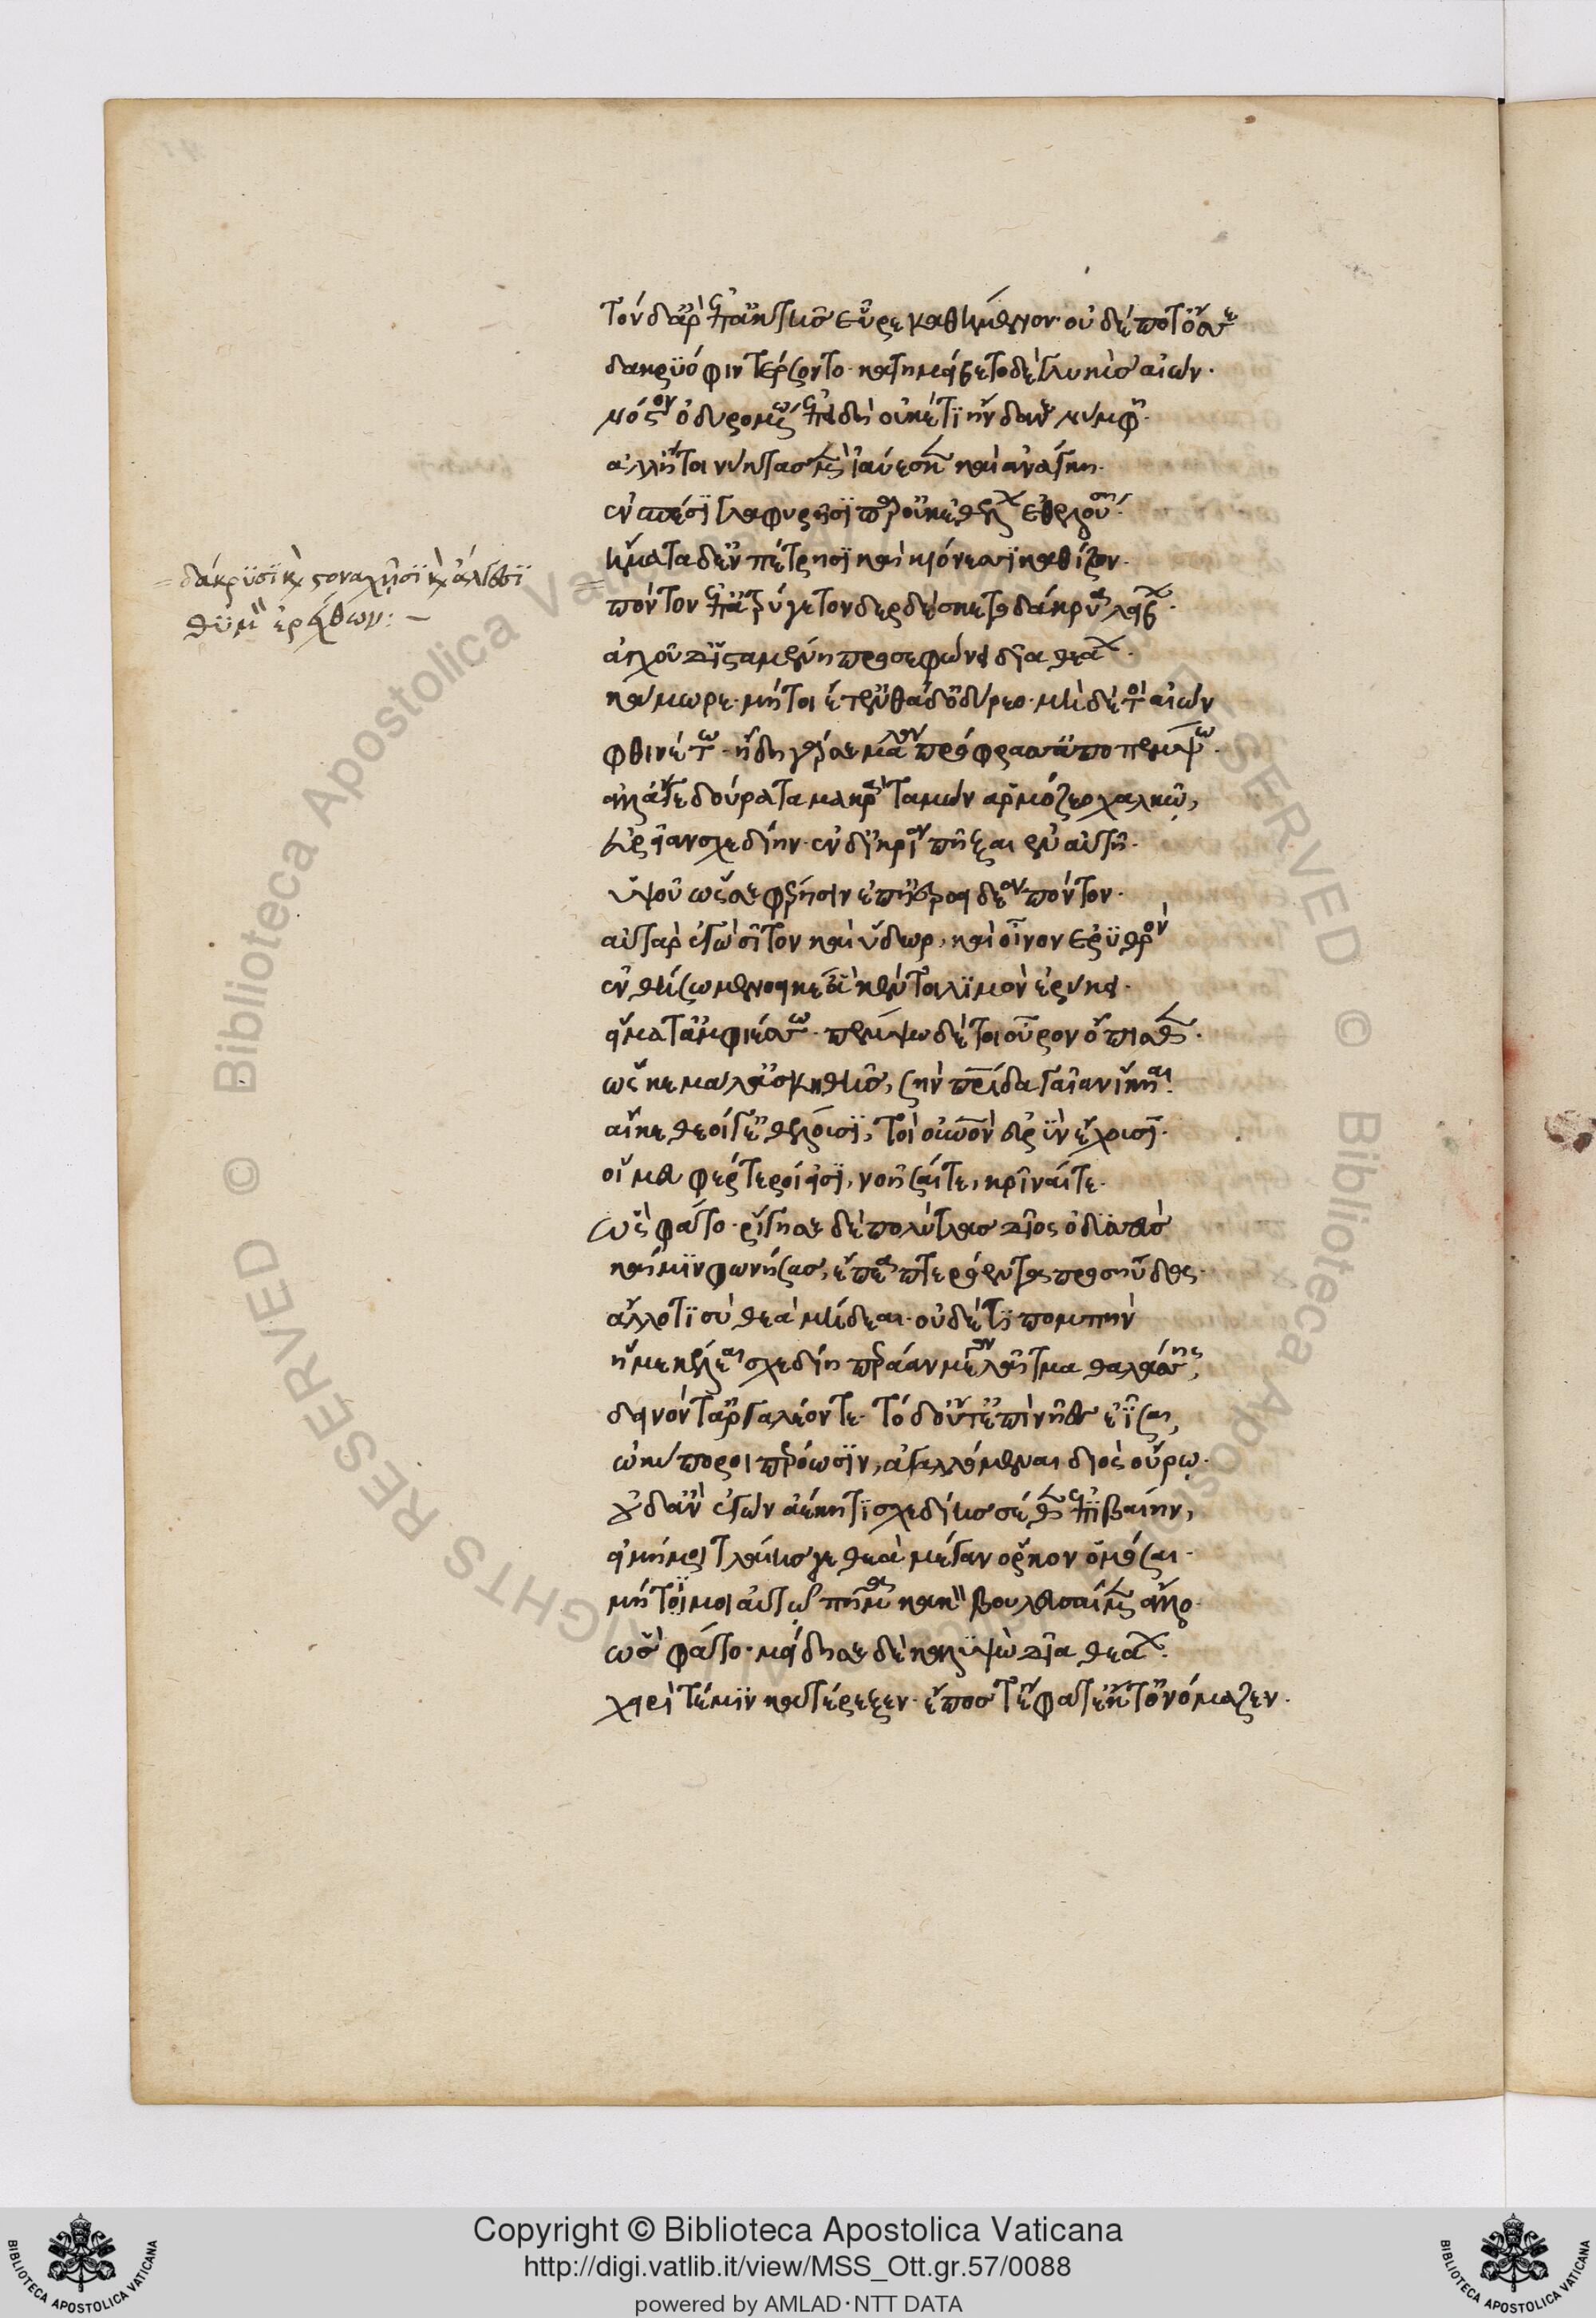 τὸν δ' ἄρ' ἐπ' ἀκτῆς εὗρε καθήμενον· οὐδέ ποτ' ὄσσε
δακρυόφιν τέρσοντο· κατείβετο δὲ γλυκὺς αἰὼν·
νόστον ὀδυρομένω· ἐπεὶ οὐκέτι ἥνδανε νύμφη·
ἀλλ' ἤτοι νύκτας μὲν ἰαύεσκεν καὶ ἀνάγκη·
ἐν σπέσϊ γλαφυροῖσϊ παρ' οὐκ ἐθέλων ἐθελούση·
ἤματα δ' ἐν πέτρησϊ καὶ ἠϊόνεσσϊ καθίζων·
δάκρυσϊ καὶ στοναχῆσϊ καὶ ἄλγεσϊ
θυμὸν ἐρέχθων:
πόντον ἐπ' ἀτρύγετον δερκέσκετο δάκρυα λείβων·
ἀγχοῦ δ' ἱσταμένη προσεφώνει δῖα θεάων·
κάμμορε· μή τοι ἔτ' ἐνθάδ' ὀδύρεο· μηδέ τοι αἰὼν
φθινέτω· ἤδη γάρ σε μάλα πρόφρασσ' ἀποπέμψω·
ἀλλ' ἄγε δούρατα μακρὰ ταμὼν ἁρμόζεο χαλκῷ,
εὐρεῖαν σχεδίην· ἐν δ' ἴκρια πῆξαι ἐπ' αὐτῆ·
ὑψοῦ ὥς σε φέρησιν ἐπ' ἠεροειδέα πόντον·
αὐτὰρ ἐγὼ σῖτον καὶ ὕδωρ, καὶ οἶνον ἐρυθρὸν
ἐνθήσω μενοεικέα κέν τοι λιμὸν ἐρύκει·
εἵματά τ' ἀμφιέσω· πέμψω δέ τοι οὖρον ὄπισθεν·
ὥς κε μάλ' ἀσκηθὴς, σὴν πατρίδα γαῖαν ἵκηαι·
αἴ κε θεοί γ' ἐθέλωσϊ, τοὶ οὐρανὸν εὐρὺν ἔχουσϊ·
οἵ μευ φέρτεροί εἰσϊ, νοῆσαί τε, κρῖναί τε·
ὣς φάτο· ῥίγησε δὲ πολύτλας δῖος ὀδυσσεὺς
καί μϊν φωνήσας, ἔπεα πτερόεντα προσηύδα·
ἄλλο τϊ σὺ θεὰ μήδεαι· οὐδέ τϊ πομπὴν
ἥ με κέλεαι σχεδίη περάαν μέγα λαῖτμα θαλάσσης,
δεινόν τ' ἀργαλέον τε· τὸ δ' οὐκ ἐπὶ νῆες ἐῖσαι,
ὠκύποροι περόωσϊν, ἀγαλλόμεναι διὸς οὔρῳ·
οὐδ' ἂν ἐγὼν ἀέκητϊ σέθεν σχεδίης ἐπιβαίην,
εἰ μή μοι τλαίης γε θεὰ μέγαν ὅρκον ὀμόσσαι·
μή τϊ μοι αὐτῷ πῆμα κακὸν βουλευσέμεν ἄλλο·
ὣς φάτο· μείδησε δὲ καλυψὼ δῖα θεάων·
χειρί τέ μϊν κατέρεξεν· ἔπος τ' ἔφατ' ἔκ τ' ὀνόμαζεν·
Copyright © Biblioteca Apostolica Vaticana
http://digi.vatlib.it/view/MSS_Ott.gr.57/0088
powered by AMLAD·NTT DATA